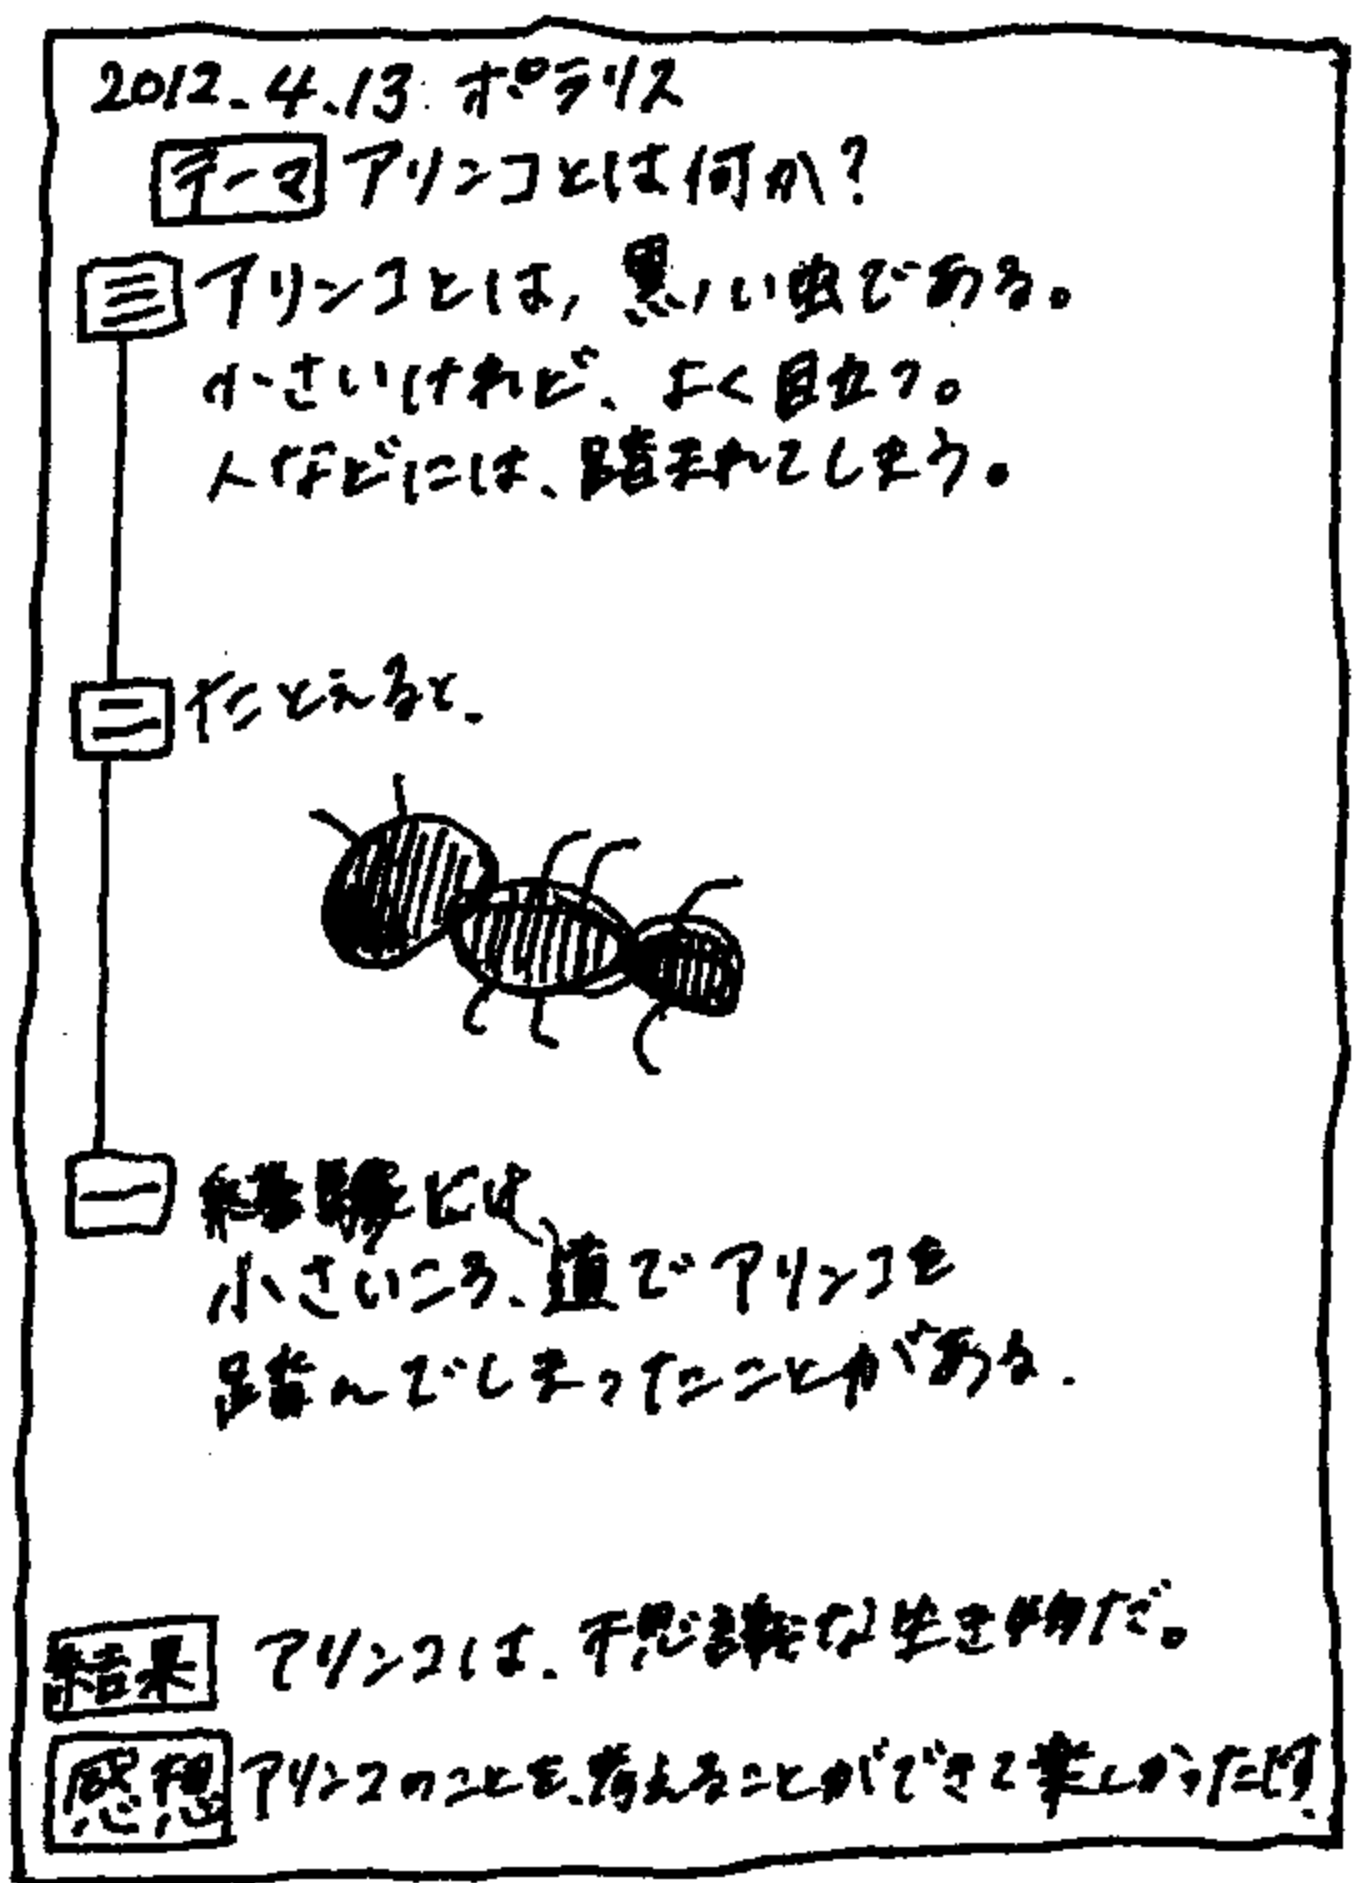 2012.4.13 ポラリス
テーマ アリンコとは何か?
三 アリンコとは、黒い虫である。
小さいけれど、よく目立つ。
人などには、踏まれてしまう。
二 たとえると、
一 経験とは、
小さいころ、道でアリンコを
踏んでしまったことがある.
結果 アリンコは、不思議な生き物だ。
感想 アリンコのことを、考えることができて楽しかったです